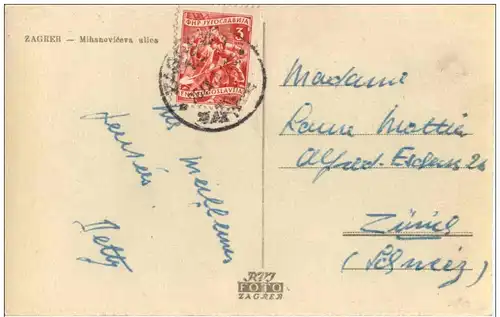 ZAGREB — Mihanovićeva ulica
ФНР ЈУГОСЛАВИЈА
3
FNR JUGOSLAVIJA
mes meilleures
pensées
Betty
Madame
Laure Mattli
Alfred-Escher 26
Zürich
(Schweiz)
FOTO
ZAGREB